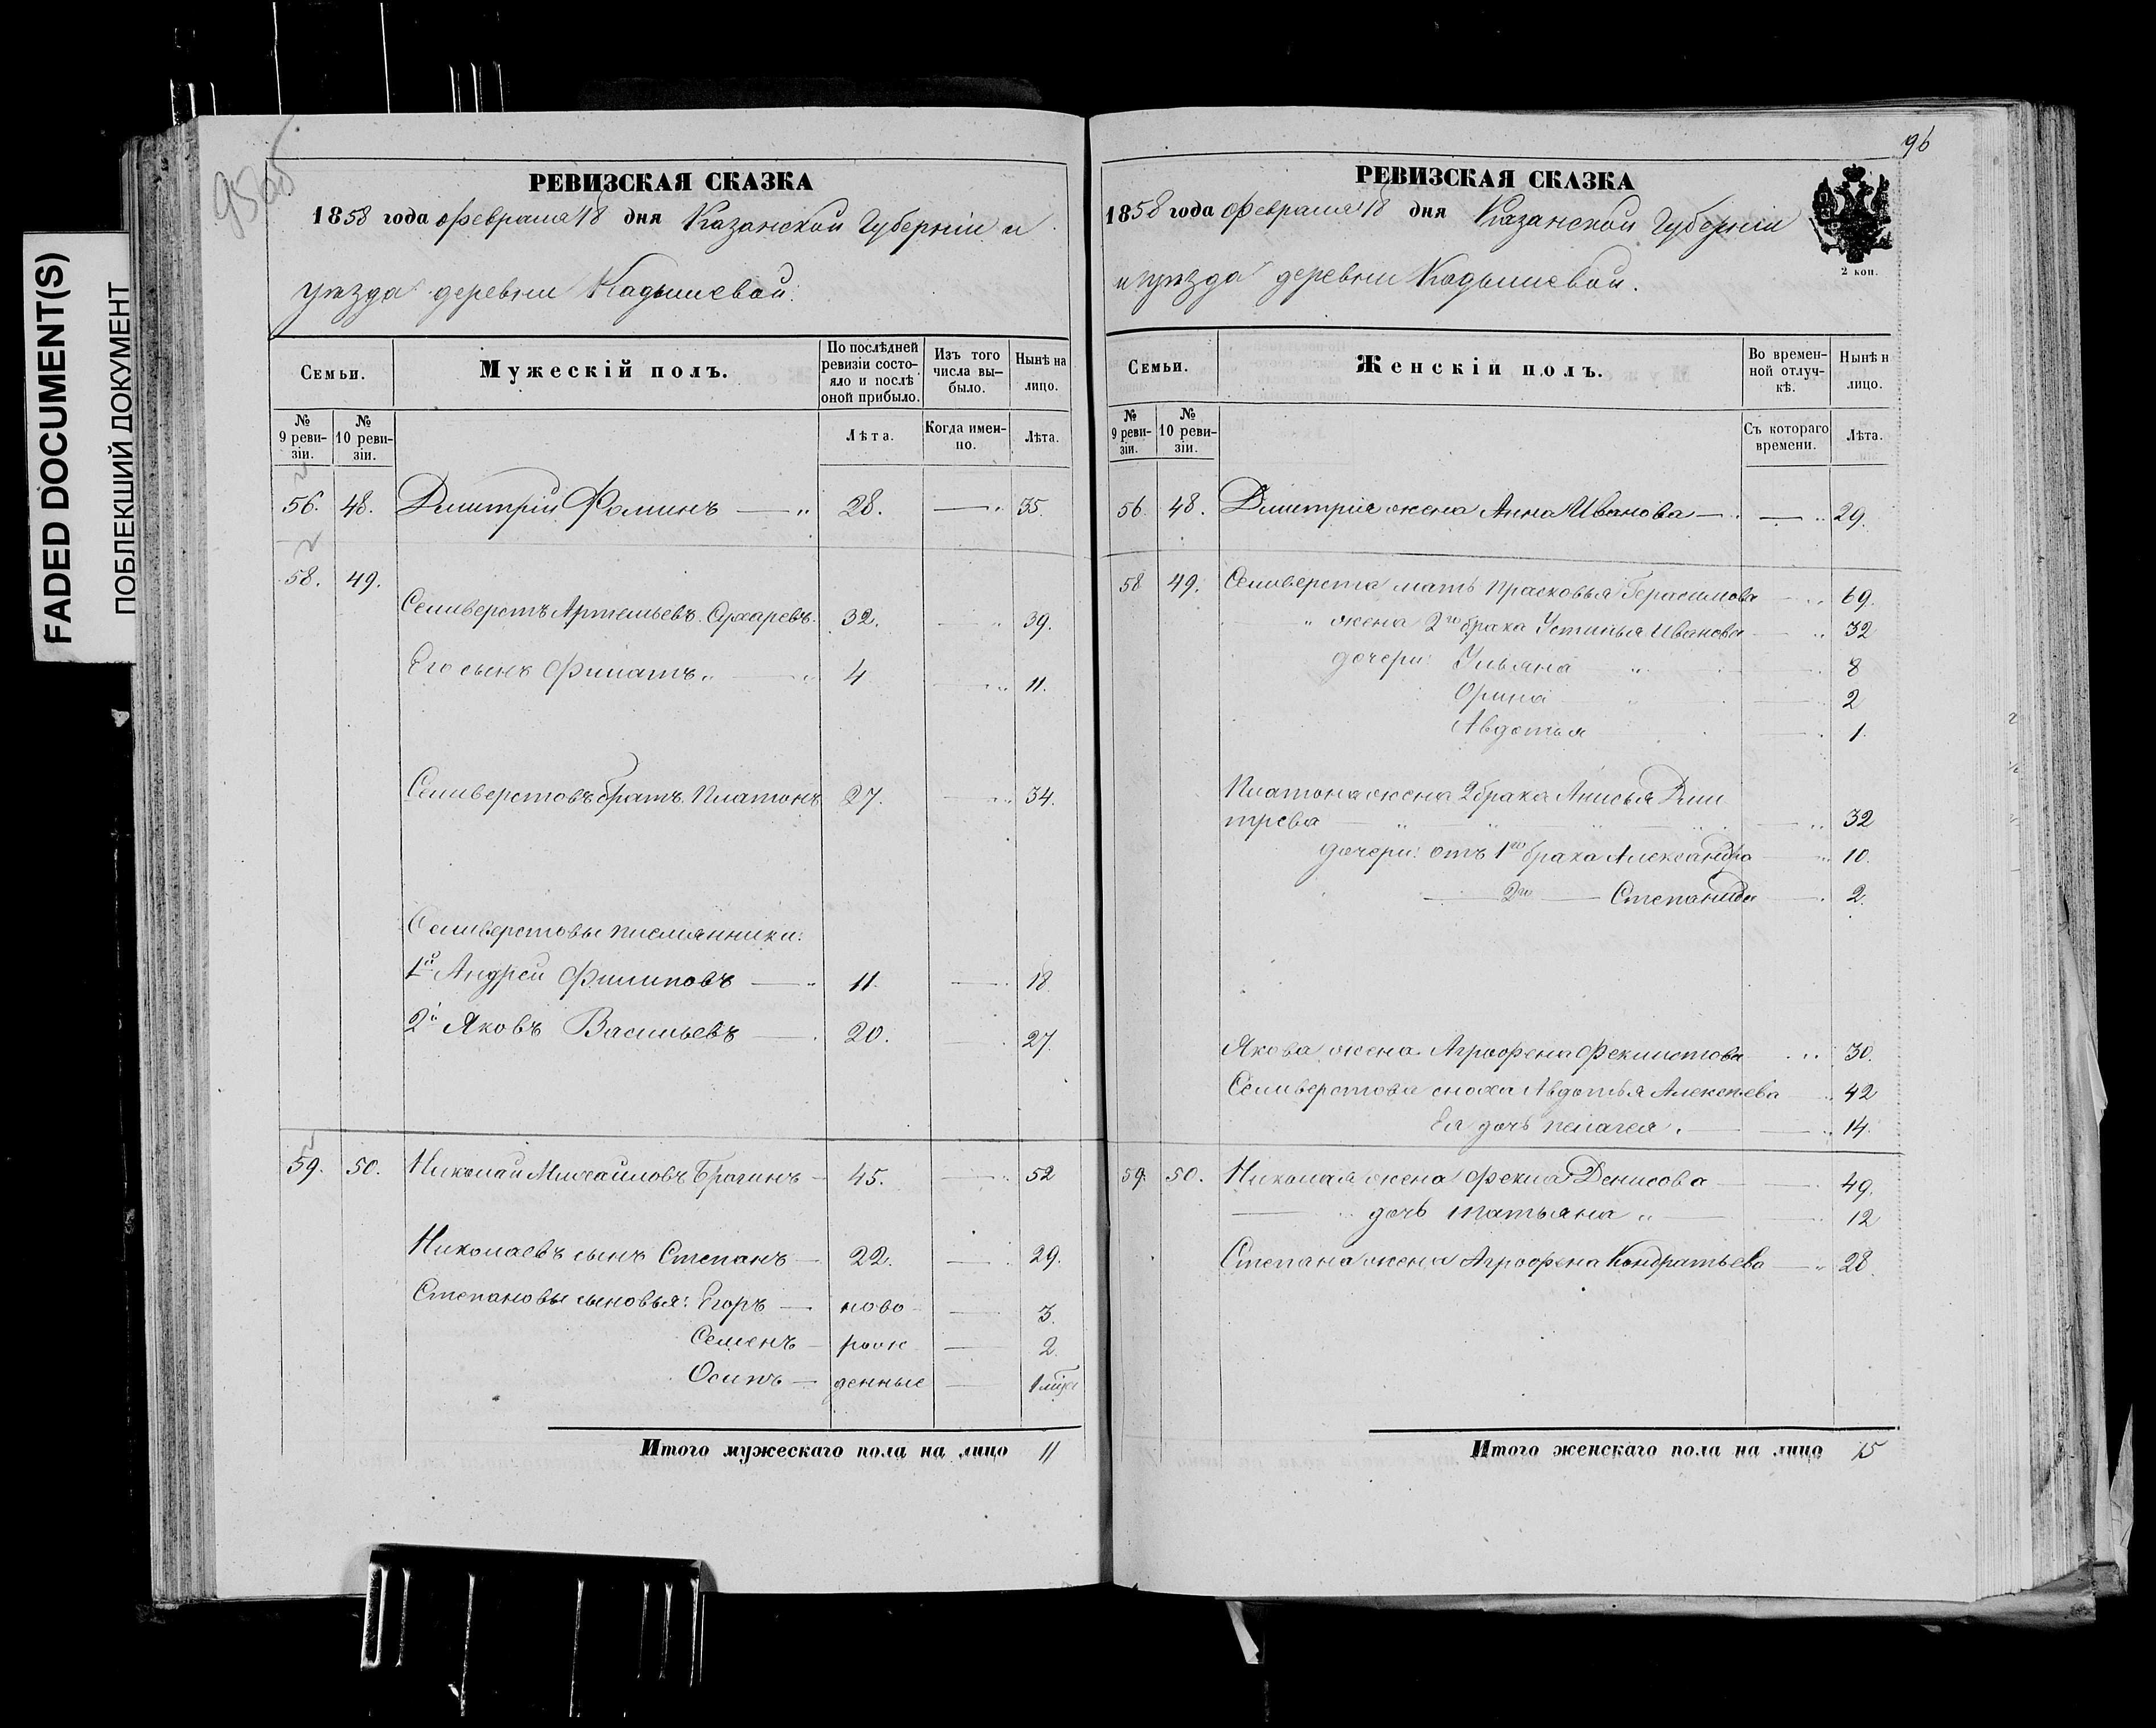 FADED DOCUMENT(S)
ПОБЛЕКШИЙ ДОКУМЕНТ
РЕВИЗСКАЯ СКАЗКА
1858 года Февраля 18 дня Казанской Губерніи и
уѣзда деревни Кадышевой.
Семьи.
Мужескій полъ.
По послѣдней ревизіи состояло и послѣ оной прибыло.
Изъ того числа выбыло.
Нынѣ на лицо.
№ 9 ревизіи.
№ 10 ревизіи.
Лѣта.
Когда именно.
Лѣта.
56. 48. Дмитрій Фоминъ — 28. — 35.
58. 49.
Селиверстъ Артемьевъ Сухаревъ. 32. 39.
Его сынъ Филатъ 4 11.
Селиверстовъ братъ Платонъ 27. 34.
Селиверстовы племянники:
1й Андрей Филиповъ — 11. — 18.
2й Яковъ Васильевъ — 20. 27.
59. 50. Николай Михайловъ Брагинъ — 45. — 52
Николаевъ сынъ Степанъ — 22. — 29.
Степановы сыновья: Егоръ — ново — 3.
Семенъ — рож — 2.
Осипъ — денные — 1 мца
Итого мужескаго пола на лицо 11
96
РЕВИЗСКАЯ СКАЗКА
1858 года Февраля 18 дня Казанской Губерніи
и уѣзда деревни Кадышевой.
2 коп.
Семьи.
Женскій полъ.
Во временной отлучкѣ.
Нынѣ н лицо.
№ 9 ревизіи.
№ 10 ревизіи.
Съ котораго времени.
Лѣта.
56. 48. Дмитрія жена Анна Иванова — — 29.
58 49. Селиверста мать Прасковья Герасимова 69.
" жена 2го брака Устинья Иванова 32
дочери: Ульяна 8
Орина 2
Авдотья 1.
Платона жена 2 брака Анисья Дми
трева 32
дочери: отъ 1го брака Александра 10.
— 2го — Степанида 2.
Якова жена Агрофена Феклистова 30.
Селиверстова сноха Авдотья Алексѣева 42
Ея дочь Пелагея 14.
59. 50. Николая жена Фекла Денисова 49.
— дочь Татьяна 12
Степана жена Агрофена Кондратьева 28.
Итого женскаго пола на лицо 15